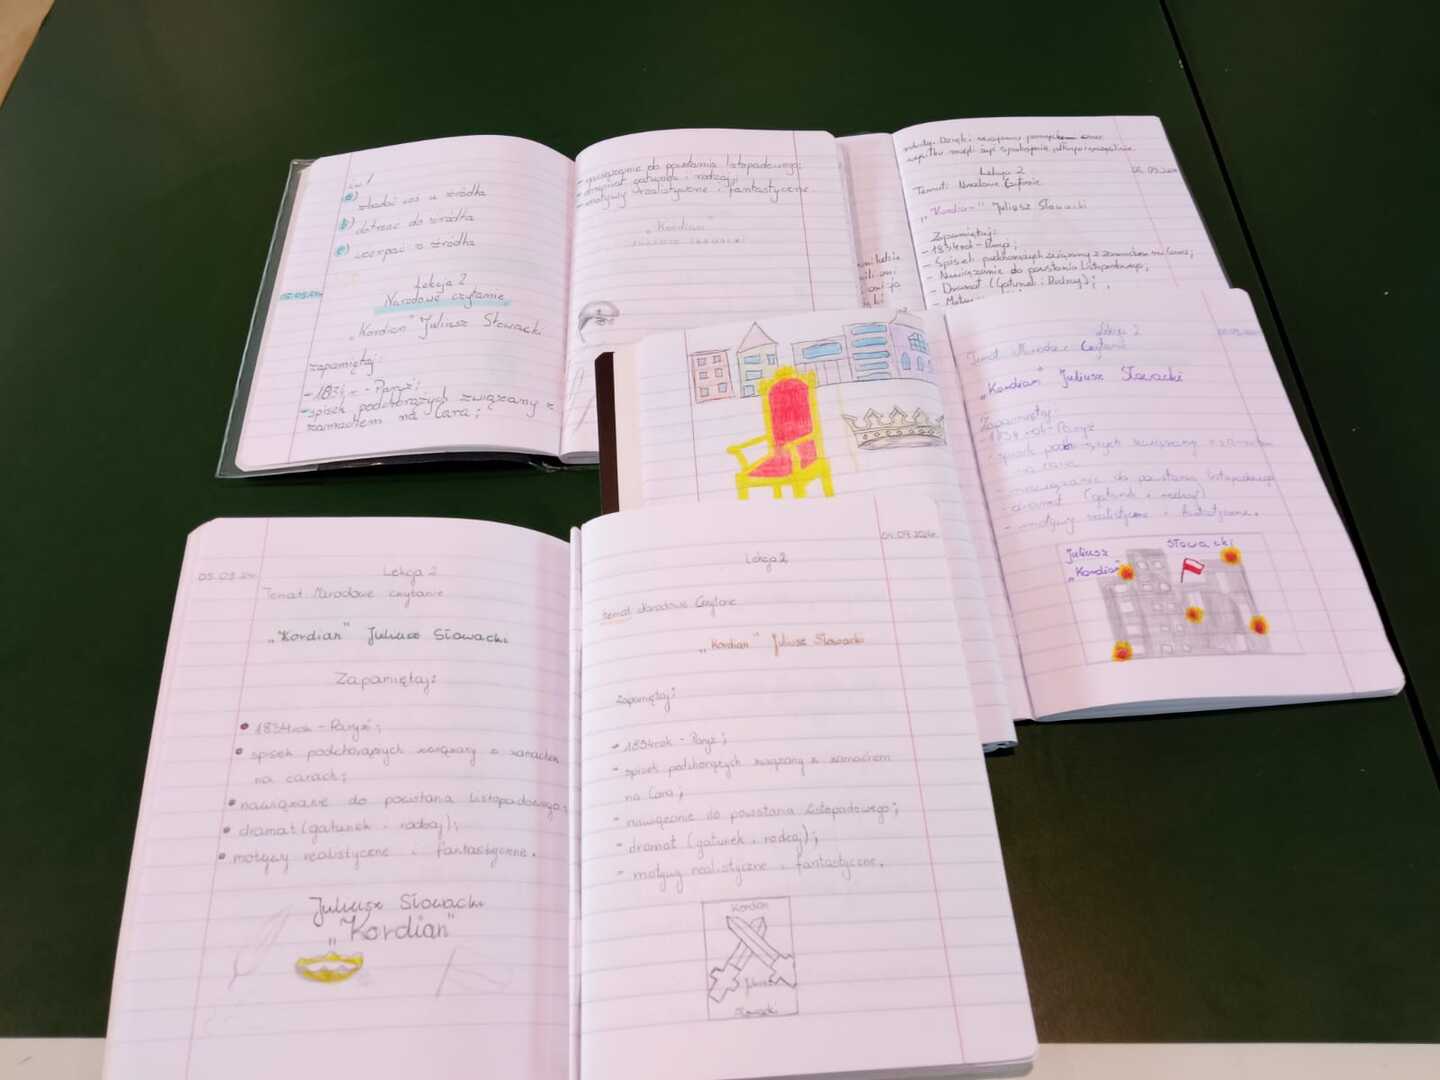 ćw. 1
a) zbadać coś u źródła
b) dotrzeć do źródła
c) czerpać z źródła
05.09.24r.
Lekcja 2
Narodowe czytanie
„Kordian" Juliusz Słowacki
zapamiętaj:
- 1834r - Paryż;
- spisek podchorążych związany z
zamachem na Cara;
- nawiązanie do powstania listopadowego;
- dramat gatunek i rodzaj;
- motywy realistyczne i fantastyczne
„Kordian"
Juliusz Słowacki
Dzięki
żyć spokojnie
Lekcja 2
Temat: Narodowe Czytanie
„Kordian" Juliusz Słowacki
Zapamiętaj:
- 1834 rok - Paryż;
- Spisek podchorążych związany z zamachem na Cara;
- Nawiązanie do powstania Listopadowego;
- Dramat (Gatunek i Rodzaj);
- Motywy
Lekcja 2
Temat Narodowe Czytanie
„Kordian" Juliusz Słowacki
Zapamiętaj:
1834 rok - Paryż
- spisek podchorążych związany z zamachem
na cara
- nawiązanie do powstania listopadowego
- dramat (gatunek i rodzaj)
- motywy realistyczne i fantastyczne.
Juliusz Słowacki
„Kordian"
05.09.24r.
Lekcja 2
Temat Narodowe czytanie
„Kordian" Juliusz Słowacki
Zapamiętaj:
• 1834rok - Paryż;
• spisek podchorążych związany z zamachem
na carach;
• nawiązanie do powstana listopadowego;
• dramat (gatunek i rodzaj);
• motywy realistyczne i fantastyczne.
Juliusz Słowacki
„Kordian"
04.09.2024r.
Lekcja 2
temat Narodowe Czytanie
„Kordian" Juliusz Słowacki
zapamiętaj:
- 1834rok - Paryż;
- spisek podchorążych związany z zamachem
na Cara;
- nawiązanie do powstania Listopadowego;
- dramat (gatunek i rodzaj);
- motywy realistyczne i fantastyczne.
Kordian
Juliusz
Słowacki